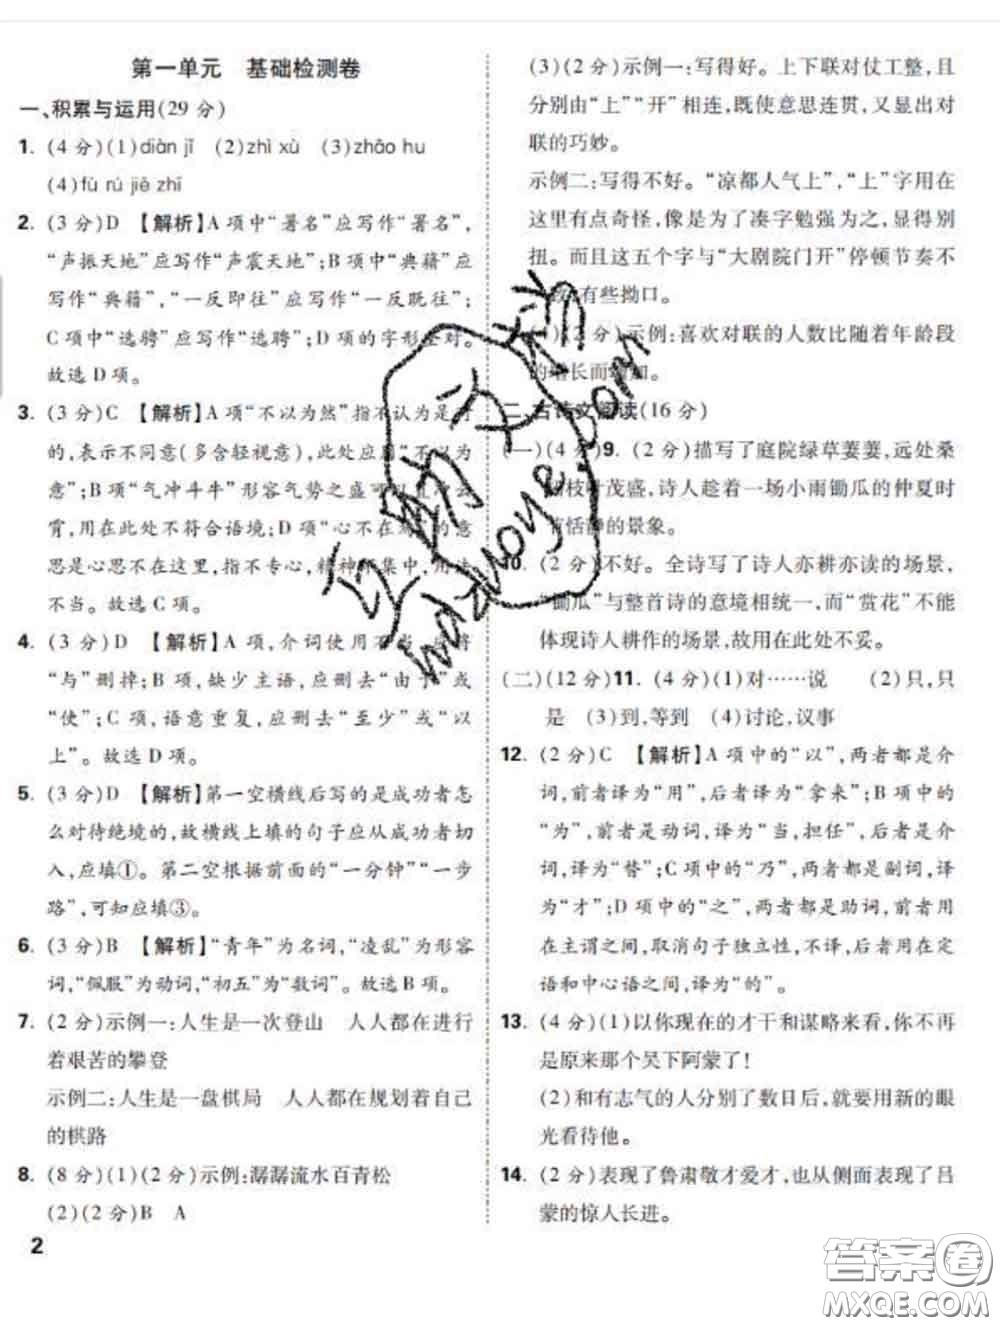 第一单元 基础检测卷
一、积累与运用(29分)
1. (4分)(1)diàn jī (2)zhì xù (3)zhāo hu
(4)fù rú jiē zhī
2. (3分)D 【解析】A项中“署名”应写作“署名”,
“声振天地”应写作“声震天地”;B项中“典籍”应
写作“典籍”,“一反即往”应写作“一反既往”;
C项中“选骋”应写作“选聘”;D项的字形全对。
故选D项。
3. (3分)C 【解析】A项“不以为然”指不认为是对
的,表示不同意(多含轻视意),此处应用“不以为
意”;B项“气冲斗牛”形容气势之盛可以直冲云
霄,用在此处不符合语境;D项“心不在焉”的意
思是心思不在这里,指不专心,精神不集中,用法
不当。故选C项。
4. (3分)D 【解析】A项,介词使用不当,应将
“与”删掉;B项,缺少主语,应删去“由于”或
“使”;C项,语意重复,应删去“至少”或“以
上”。故选D项。
5. (3分)D 【解析】第一空横线后写的是成功者怎
么对待绝境的,故横线上填的句子应从成功者切
入,应填①。第二空根据前面的“一分钟”“一步
路”,可知应填③。
6. (3分)B 【解析】“青年”为名词,“凌乱”为形容
词,“佩服”为动词,“初五”为“数词”。故选B项。
7. (2分)示例一:人生是一次登山 人人都在进行
着艰苦的攀登
示例二:人生是一盘棋局 人人都在规划着自己
的棋路
8. (8分)(1)(2分)示例:潺潺流水百青松
(2)(2分)B A
2
(3)(2分)示例一:写得好。上下联对仗工整,且
分别由“上”“开”相连,既使意思连贯,又显出对
联的巧妙。
示例二:写得不好。“凉都人气上”,“上”字用在
这里有点奇怪,像是为了凑字勉强为之,显得别
扭。而且这五个字与“大剧院门开”停顿节奏不
有些拗口。
(2分)示例:喜欢对联的人数比随着年龄段
的增长而增加。
二、古诗文阅读(16分)
(一)(4分)9. (2分)描写了庭院绿草萋萋,远处桑
枝叶茂盛,诗人趁着一场小雨锄瓜的仲夏时
恬静的景象。
10. (2分)不好。全诗写了诗人亦耕亦读的场景,
“锄瓜”与整首诗的意境相统一,而“赏花”不能
体现诗人耕作的场景,故用在此处不妥。
(二)(12分)11. (4分)(1)对……说 (2)只,只
是 (3)到,等到 (4)讨论,议事
12. (2分)C 【解析】A项中的“以”,两者都是介
词,前者译为“用”,后者译为“拿来”;B项中的
“为”,前者是动词,译为“当,担任”,后者是介
词,译为“替”;C项中的“乃”,两者都是副词,译
为“才”;D项中的“之”,两者都是助词,前者用
在主谓之间,取消句子独立性,不译,后者用在定
语和中心语之间,译为“的”。
13. (4分)(1)以你现在的才干和谋略来看,你不再
是原来那个吴下阿蒙了!
(2)和有志气的人分别了数日后,就要用新的眼
光看待他。
14. (2分)表现了鲁肃敬才爱才,也从侧面表现了吕
蒙的惊人长进。
答案卷
MXQE.COM